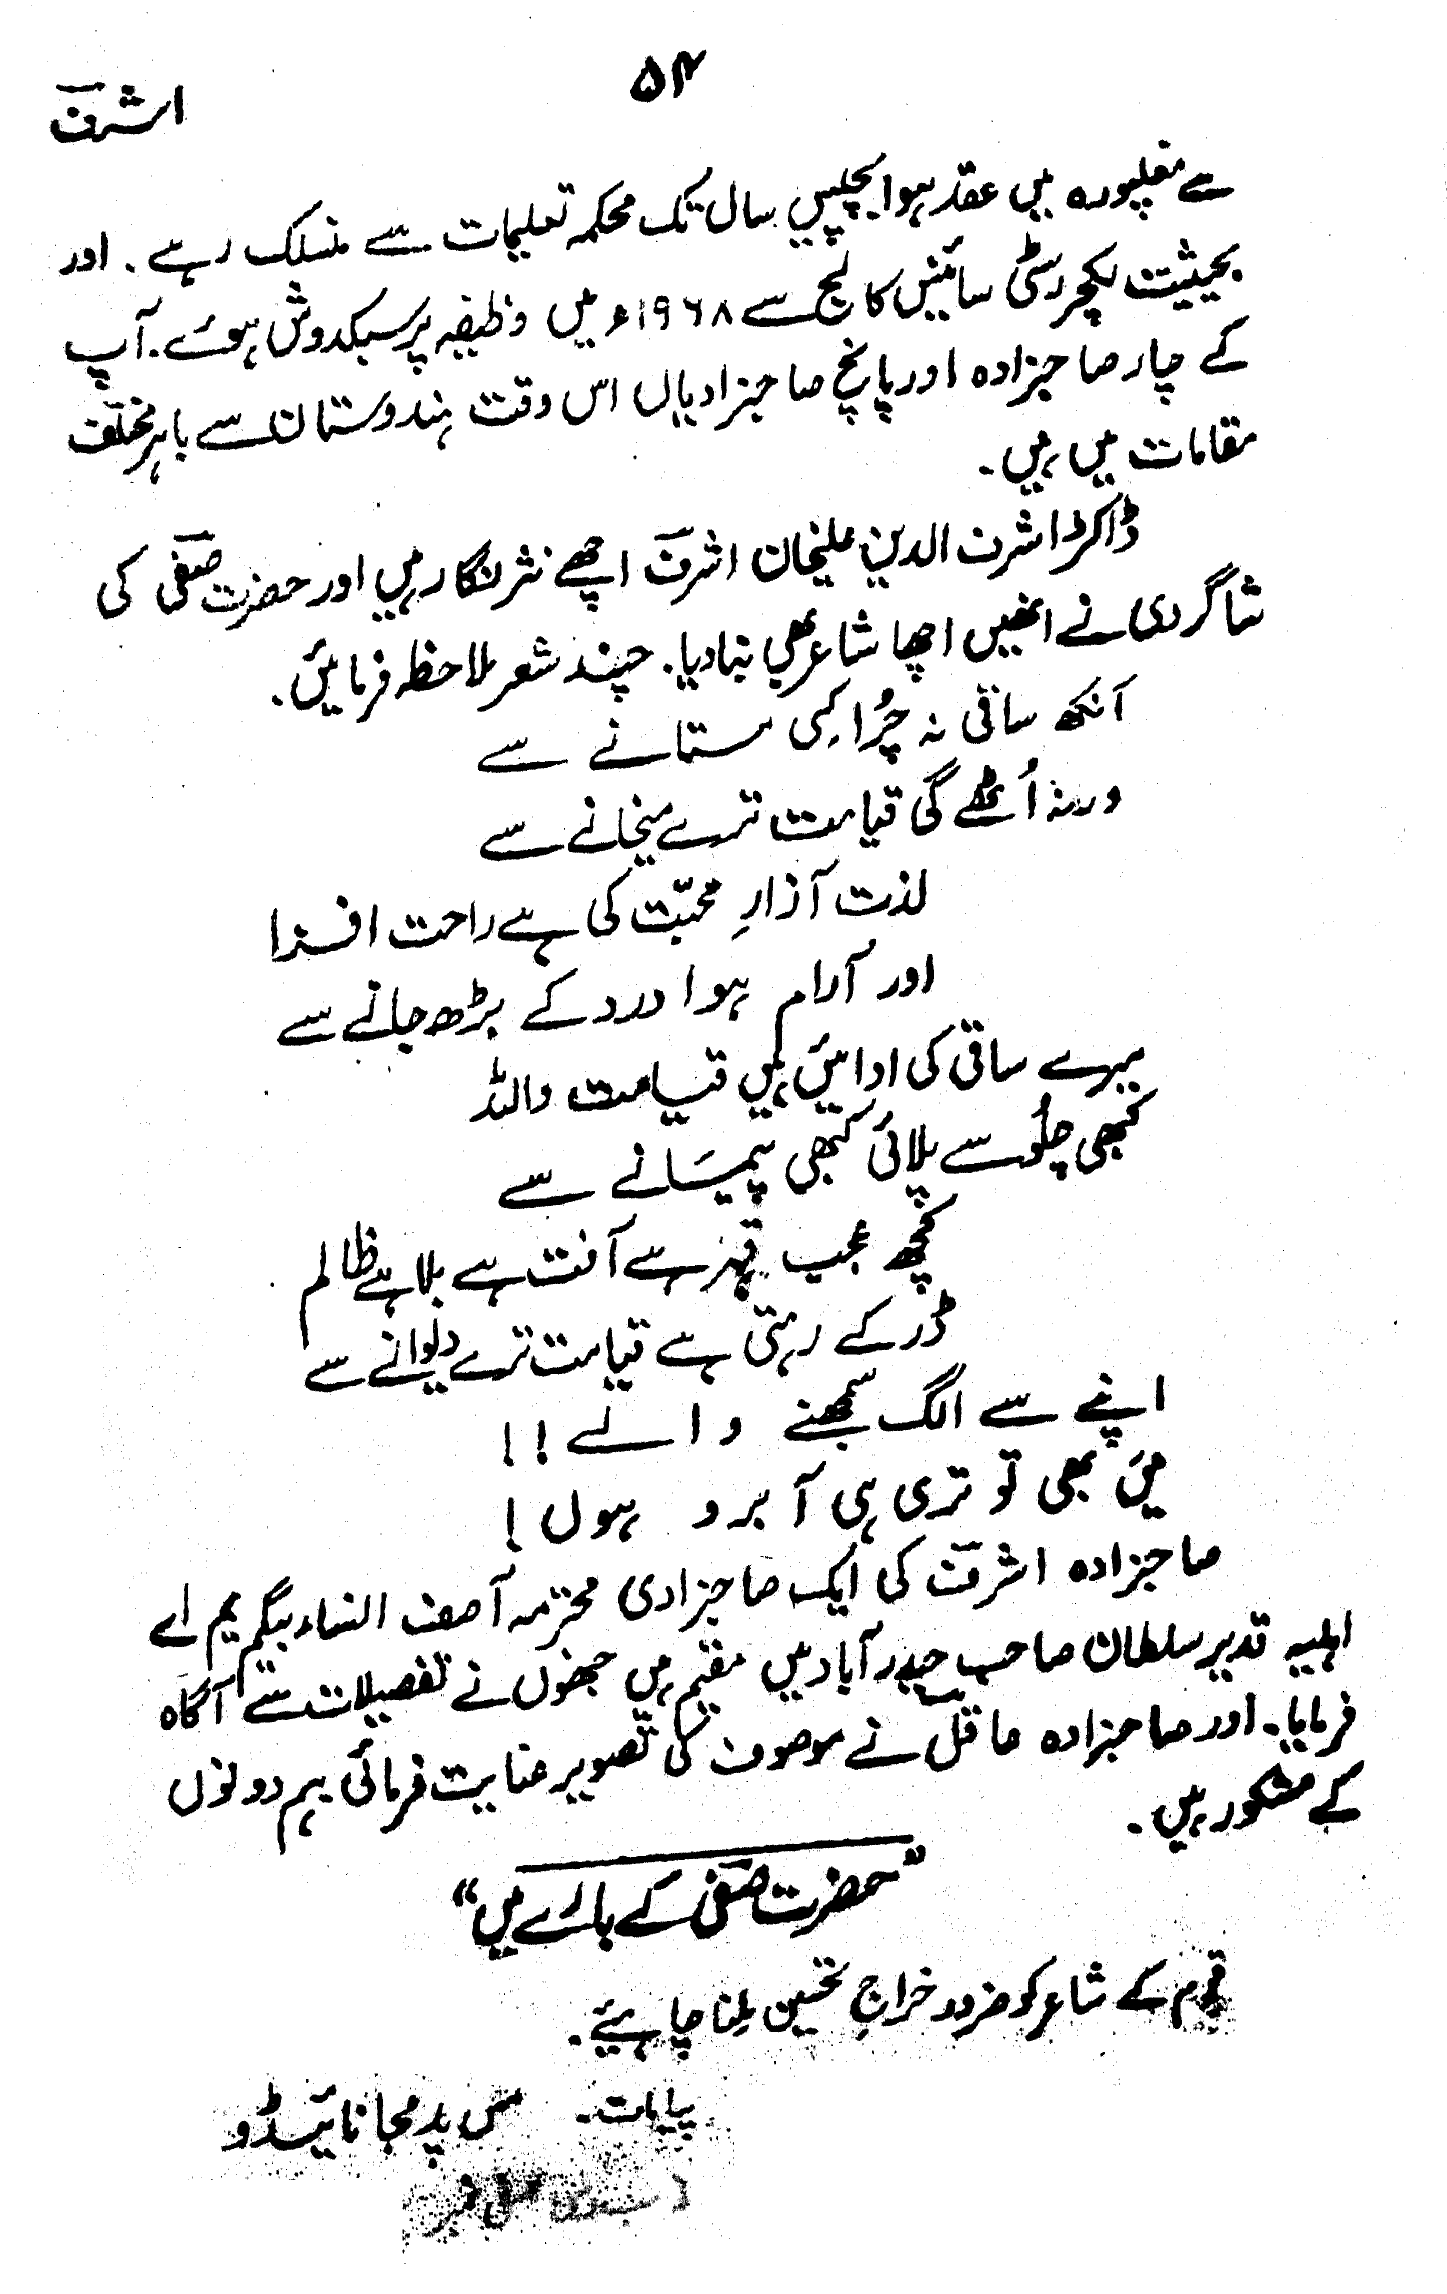 ۵۴
اشرفؔ
سے مغلپورہ میں عقد ہوا۔ پچیس سال تک محکمہ تعلیمات سے منسلک رہے۔ اور
بحیثیت لکچرر سٹی سائنس کالج سے ۱۹۶۸ء میں وظیفہ پر سبکدوش ہوئے۔ آپ
کے چار صاحبزادہ اور پانچ صاحبزادیاں اس وقت ہندوستان سے باہر مختلف
مقامات میں ہیں۔
ڈاکٹر اشرف الدین علیخان اشرفؔ اچھے نثر نگار ہیں اور حضرت صفیؔ کی
شاگردی نے انھیں اچھا شاعر بھی بنا دیا۔ چند شعر ملاحظہ فرمائیں۔
آنکھ ساقی نہ چُرا کسی مستانے سے
ورنہ اُٹھے گی قیامت ترے میخانے سے
لذت آزارِ محبّت کی ہے راحت افزا
اور آرام ہوا درد کے بڑھ جانے سے
میرے ساقی کی ادائیں ہیں قیامت واللہ
کبھی چلُّو سے پلائی کبھی پیمَانے سے
کچھ عجب قہر ہے آفت ہے بلا ہے ظالم
ڈر کے رہتی ہے قیامت ترے دیوانے سے
اپنے سے الگ سمجھنے والے !!
میَں بھی تو تری ہی آبرو ہوں !
صاحبزادہ اشرفؔ کی ایک صاحبزادی محترمہ آصف النساء بیگم یم اے
اہلیہ قدیر سلطان صاحب حیدرآباد میں مقیم ہیں جنھوں نے تفصیلات سے آگاہ
فرمایا۔ اور صاحبزادہ عاقل نے موصوف کی تصویر عنایت فرمائی ہم دونوں
کے مشکور ہیں۔
”حضرت صفیؔ کے بارے میں“
قوم کے شاعر کو ضرور خراجِ تحسین ملنا چاہیئے۔
پیامات۔ مس پدمجا نائیڈو